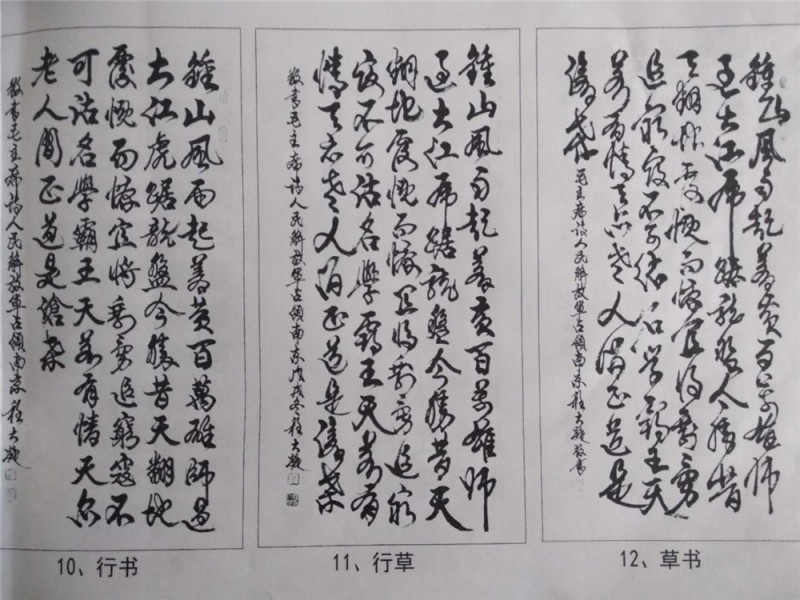 鍾山風雨起蒼黄百萬雄師過
大江虎踞龍盤今勝昔天翻地
覆慨而慷宜將剩勇追窮寇不
可沽名學霸王天若有情天亦
老人間正道是滄桑
敬書毛主席詩人民解放軍占領南京程大
10、行书
鍾山風雨起蒼黄百万雄師
過大江虎踞龍盤今勝昔天
翻地覆慨而慷宜將剩勇追窮
寇不可沽名學霸王天若有
情天亦老人間正道是滄桑
敬書毛主席詩人民解放軍占領南京戊戌冬程大
11、行草
鍾山風雨起蒼黄百万雄師
過大江虎踞龍盤今勝昔
天翻地覆慨而慷宜將剩勇
追窮寇不可沽名學霸王天
若有情天亦老人間正道是
滄桑 毛主席詩人民解放軍占領南京程大敬書
12、草书